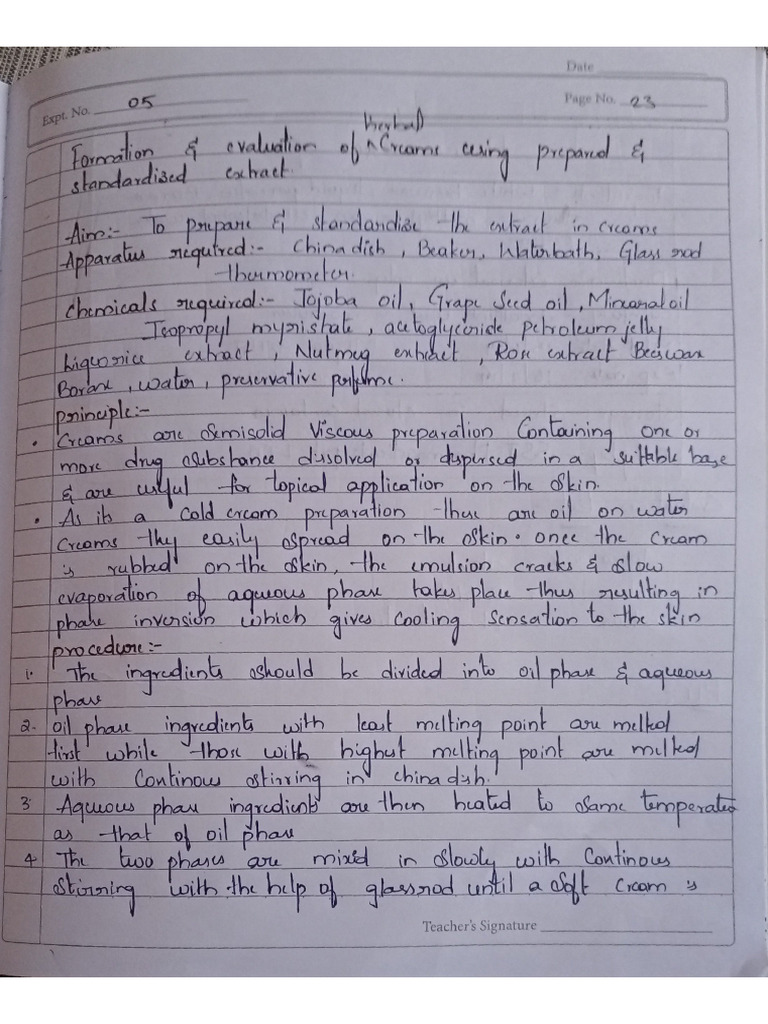 Date
Expt. No. 05
Page No. 23
Herbal
Formation & evaluation of ^ Creams using prepared &
standardised extract.
Aim:- To prepare & standardise the extract in creams
Apparatus required:- China dish, Beaker, Waterbath, Glass rod
thermometer.
Chemicals required:- Jojoba oil, Grape Seed oil, Mineral oil
Isopropyl myristate, acetoglyceride petroleum jelly
Liquorice extract, Nutmug extract, Rose extract Beeswax
Borax, water, preservative perfume.
principle:-
• Creams are semisolid viscous preparation Containing one or
more drug substance dissolved or dispersed in a suitable base
& are useful for topical application on the skin.
• As its a cold cream preparation these are oil on water
Creams they easily spread on the skin. once the cream
is rubbed on the skin, the emulsion cracks & slow
evaporation of aqueous phase takes place thus resulting in
phase inversion which gives cooling sensation to the skin
procedure:-
1. The ingredients should be divided into oil phase & aqueous
phase
2. oil phase ingredients with least melting point are melted
first while those with highest melting point are melted
with Continous stirring in china dish.
3 Aqueous phase ingredients are then heated to same temperature
as that of oil phase
4 The two phases are mixed in slowly with Continous
Stirring with the help of glassrod until a soft cream is
Teacher's Signature